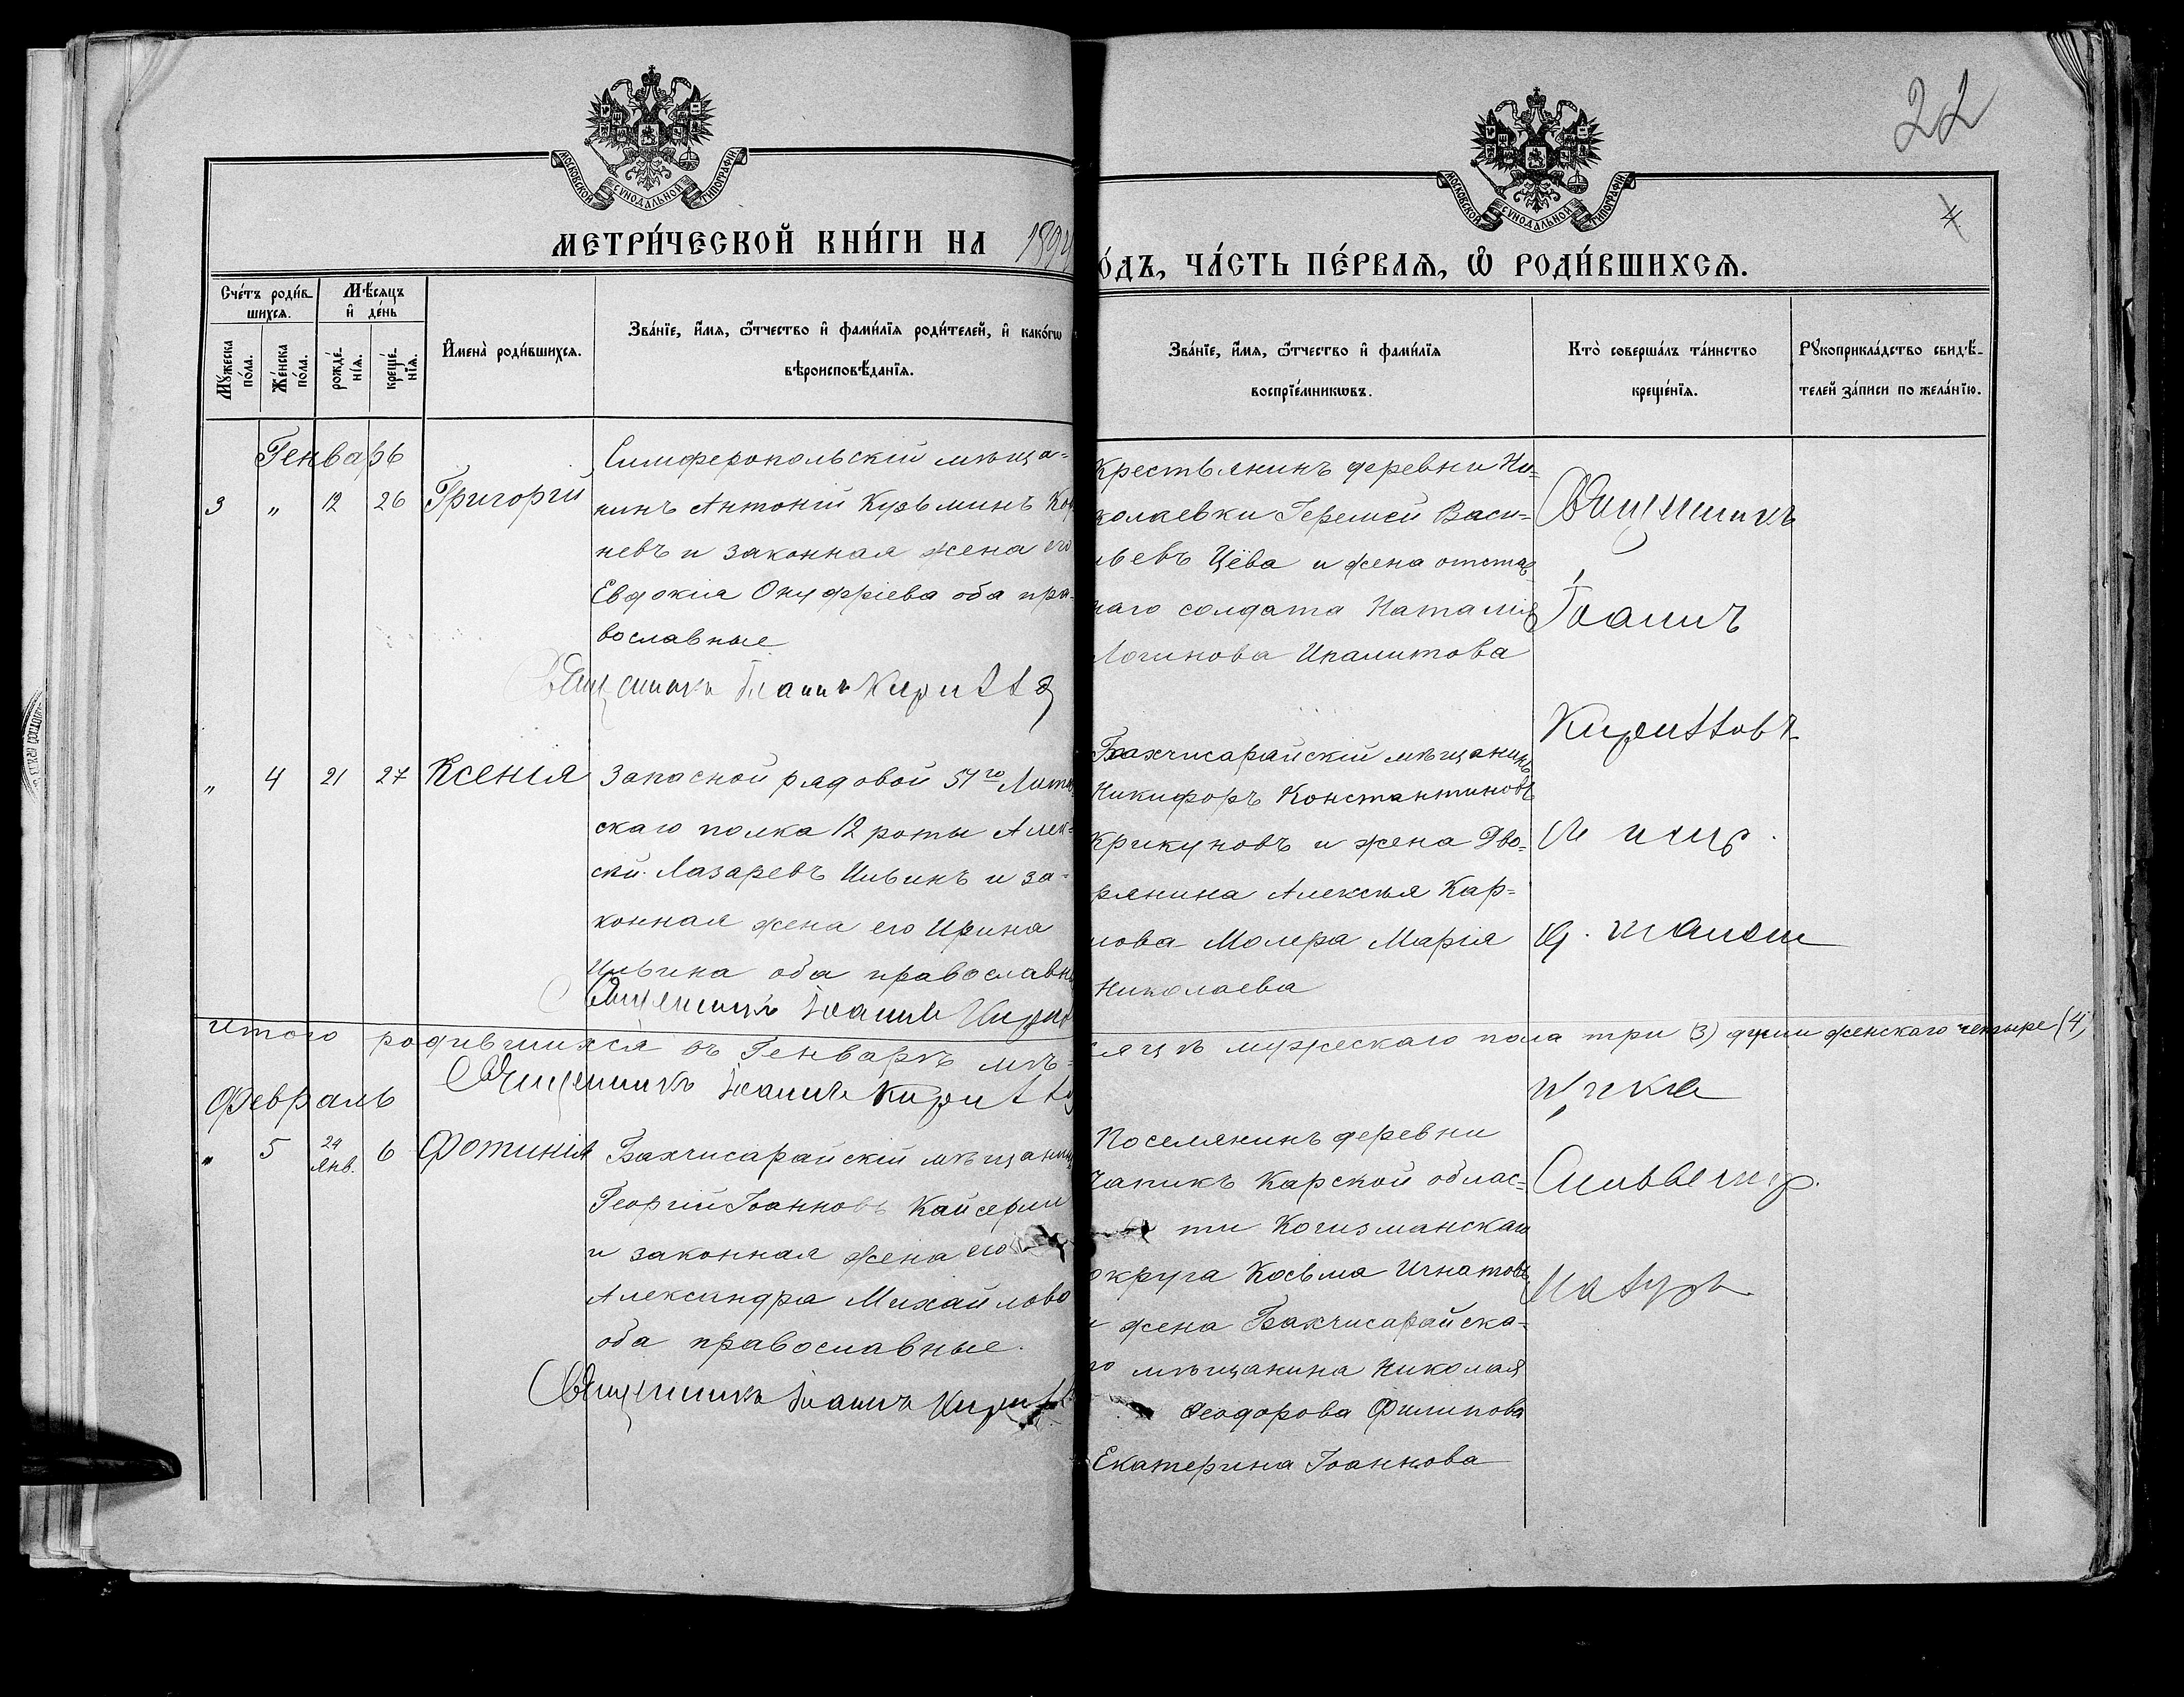 22
4
МОСКОВСКОЙ СѴНОДАЛЬНОЙ ТИПОГРАФІИ
МОСКОВСКОЙ СѴНОДАЛЬНОЙ ТИПОГРАФІИ
МЕТРИ́ЧЕСКОЙ КНИ́ГИ НА 1894
О́ДЪ, ЧА́СТЬ ПЕ́РВАЯ, Ѡ҆ РОДИ́ВШИХСЯ.
Сче́тъ роди́в-
шихся.
Мѣ́сяцъ
и҆ де́нь
Му́жеска
по́ла.
Же́нска
по́ла.
рожде́-
нїя.
креще́-
нїя.
И҆мена̀ роди́вшихся.
Зва́нїе, и҆́мя, ѻ҆́тчество и҆ фами́лїя роди́телей, и҆ како́гѡ
вѣроисповѣ́данїя.
Зва́нїе, и҆́мя, ѻ҆́тчество и҆ фами́лїя
воспрїе́мникѡвъ.
Кто̀ соверша́лъ та́инство
креще́нїя.
Рꙋкоприкла́дство свидѣ́-
телей за́писи по жела́нїю.
Генварь
3 " 12 26 Григорій
Симферопольскій мѣща=
нинъ Антоній Кузьминъ
невъ и законная жена его
Евдокія Онуфріева оба пра-
вославные
Священникъ Іоаннъ
Крестьянинъ деревни Ни=
колаевки Іеремей Васи=
льевъ Цёва и жена отстав
наго солдата Наталія
Логинова Ипалитова
Священникъ
Іоаннъ
" 4 21 27 Ксенія
Запасной рядовой 51го
скаго полка 12 роты Алек=
сѣй Лазаревъ Ильинъ и за=
конная жена его Ирина
Ильина оба православн
Священникъ Іоаннъ
Бахчисарайскій мѣщанинъ
Никифоръ Константиновъ
Крикуновъ и жена Дво=
рянина Алексѣя Кар=
лова Молера Марія
Николаева
Итого родившихся въ Генварѣ мѣ-
сяцѣ мужескаго пола три (3) души женскаго четыре (4)
Священникъ Іоаннъ
Февраль
" 5 24 Янв. 6 Фотинія
Бахчисарайскій мѣщанинъ
Георгій Іоанновъ Кайсерли
и законная жена его
Александра Михайлова
оба православные.
Священникъ Іоаннъ
Поселянинъ деревни
Чапикъ Карской облас=
ти Кагизманскаго
округа Косьма Игнатовъ
и жена Бахчисарайска-
го мѣщанина Николая
Феодорова Филипова
Екатерина Іоаннова